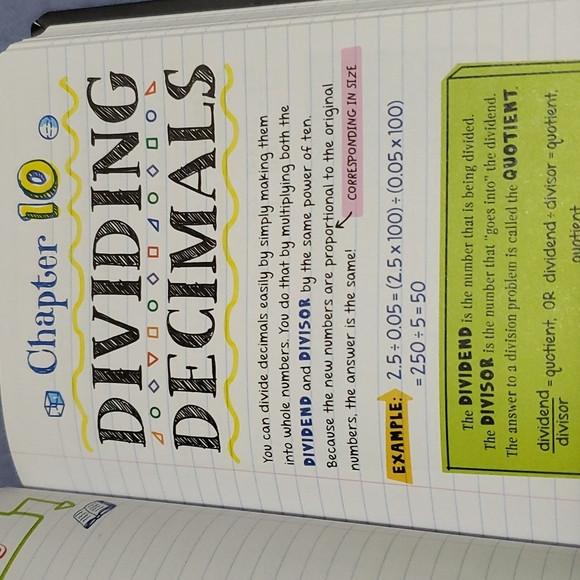 Chapter 10
DIVIDING
DECIMALS
You can divide decimals easily by simply making them
into whole numbers. You do that by multiplying both the
DIVIDEND and DIVISOR by the same power of ten.
Because the new numbers are proportional to the original
numbers, the answer is the same!
CORRESPONDING IN SIZE
EXAMPLE: 2.5 ÷ 0.05 = (2.5 x 100) ÷ (0.05 x 100)
= 250 ÷ 5 = 50
The DIVIDEND is the number that is being divided.
The DIVISOR is the number that "goes into" the dividend.
The answer to a division problem is called the QUOTIENT.
dividend
divisor
= quotient, OR dividend ÷ divisor = quotient,
quotient